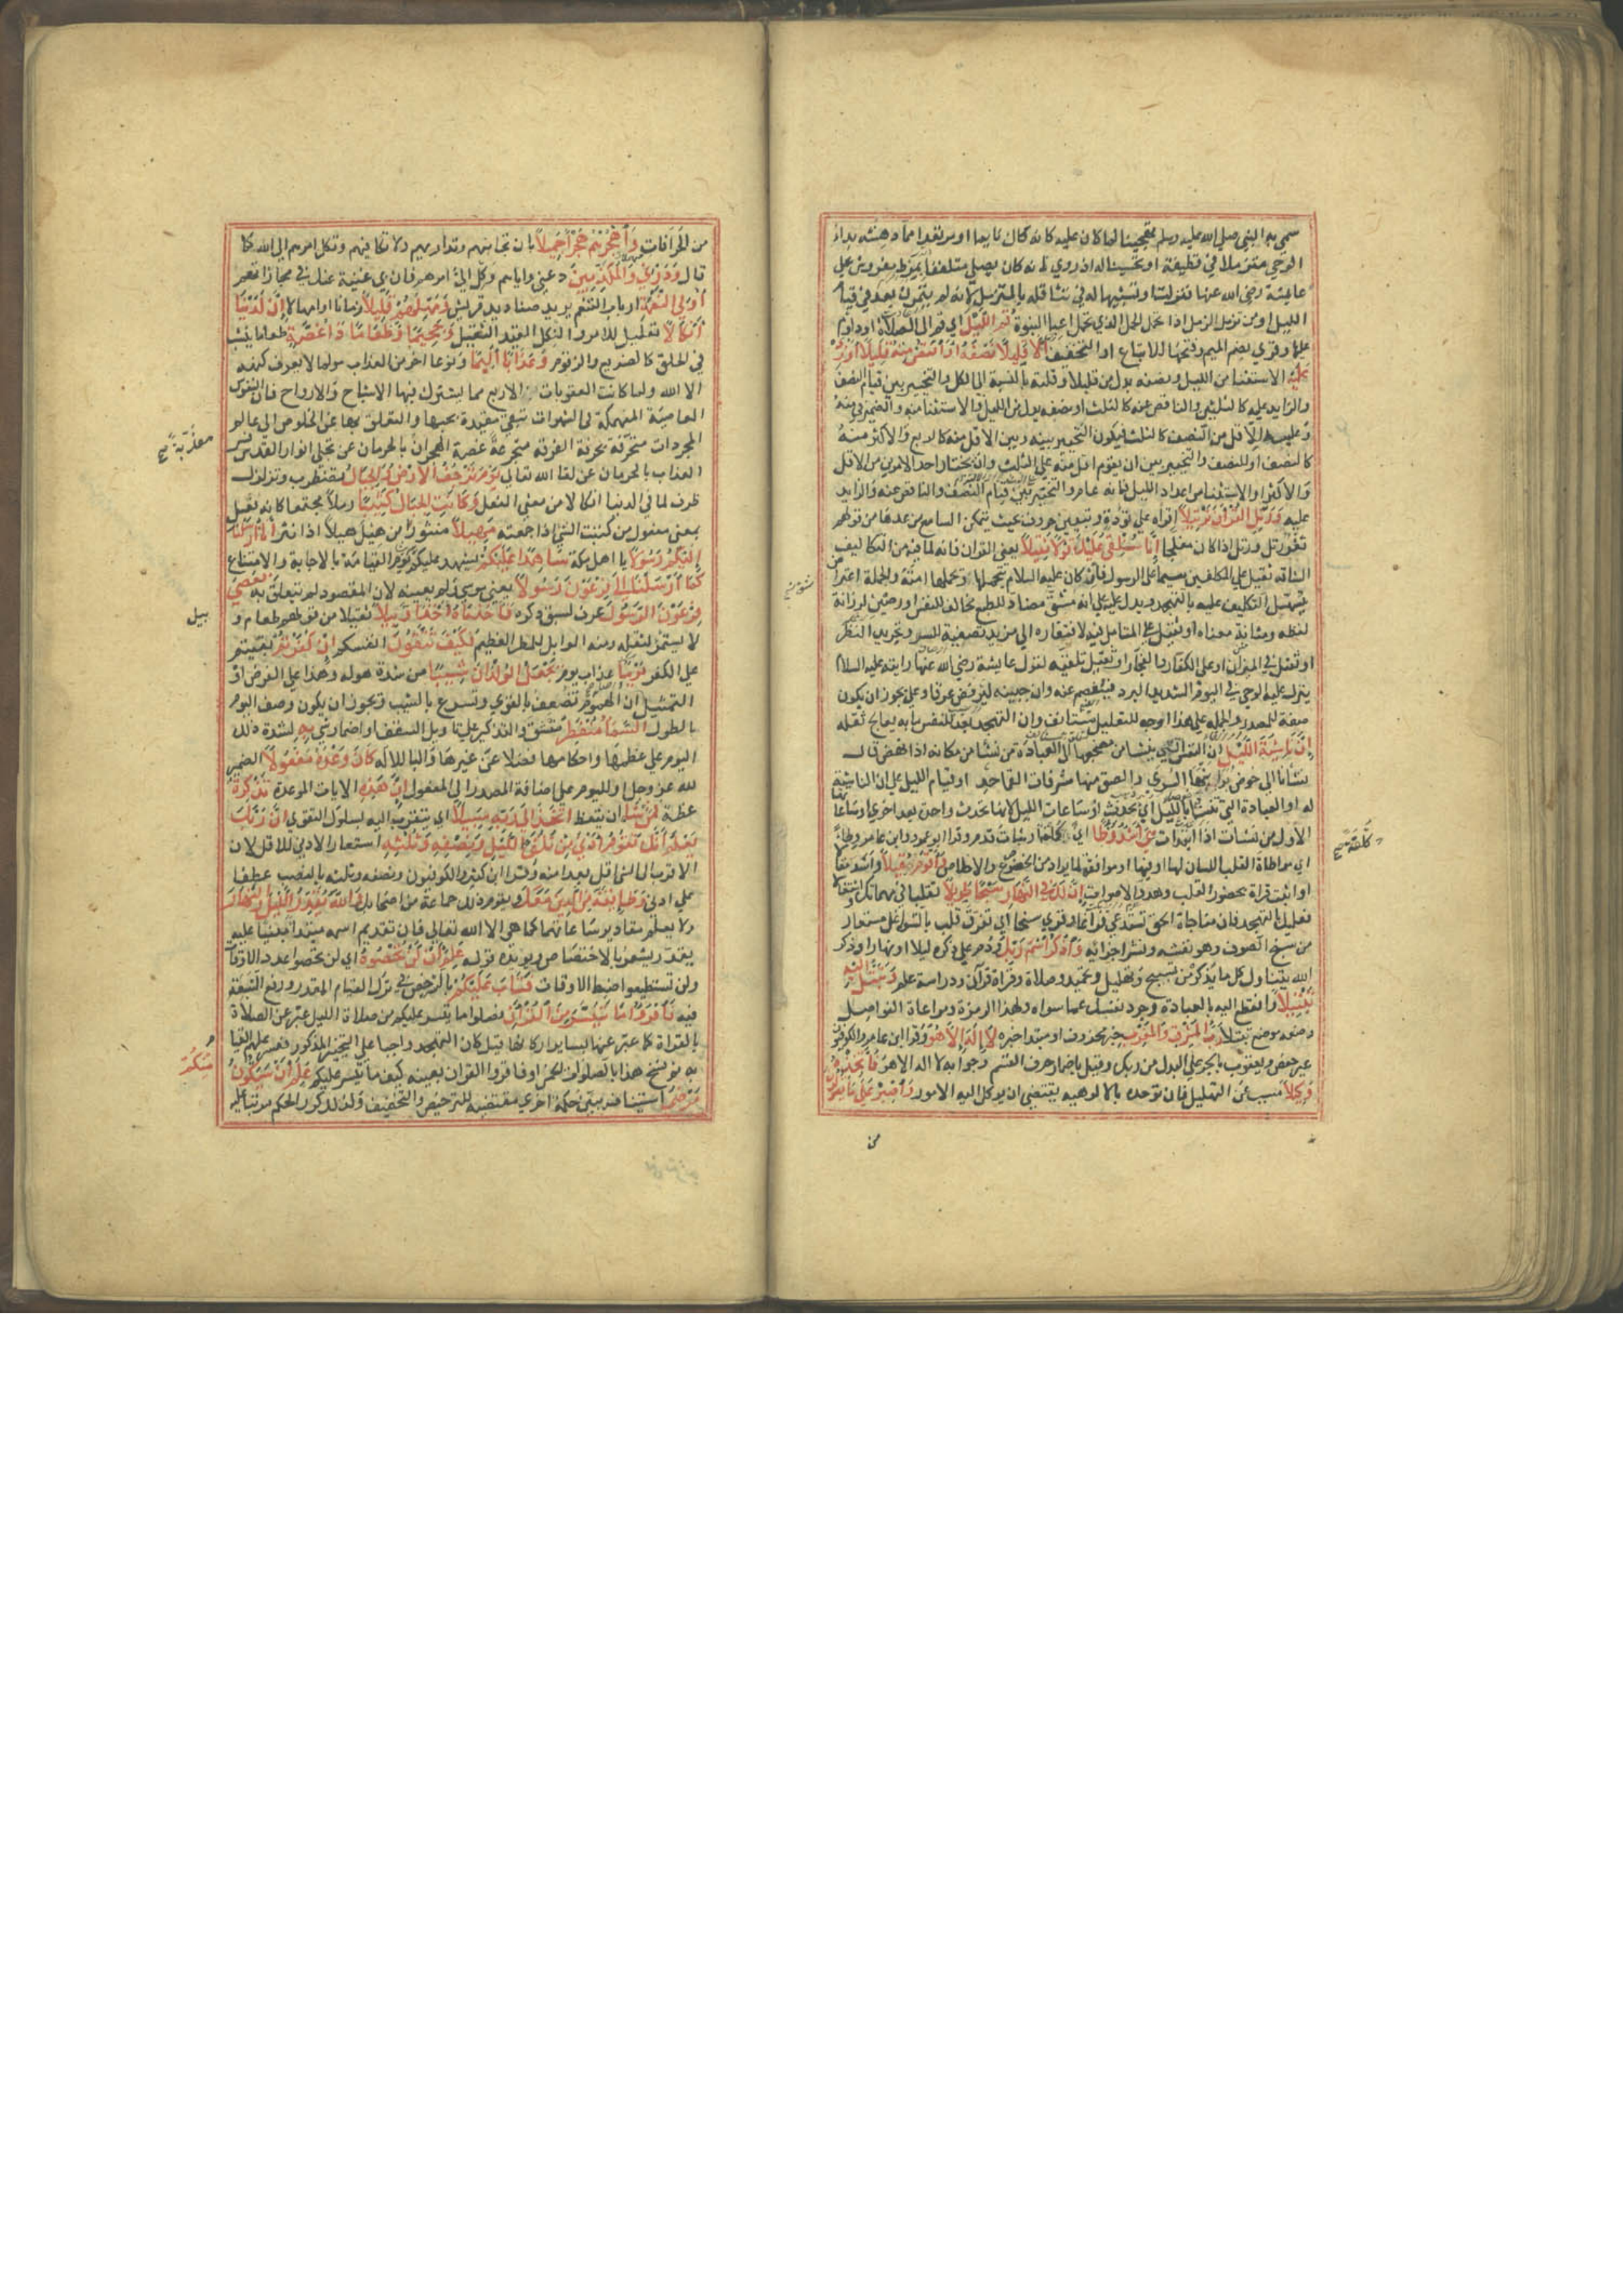 سمي به النبي صلى الله عليه وسلم تهجينا لما كان عليه كانه كان نايما او مرتعدا مما دهشه بداء
الوحي متزملا في قطيفة او تحسينا له اذ روي انه كان يصلي متلففا بمرط مفروش على
عايشة رضي الله عنها فنزلت او تشبيها له في تثاقله بالمتزمل لانه لم يتمرن بعد في قيام
الليل او من تزمل الزمل اذا تحمل الحمل الذي تحمل اعباء النبوة قُمِ اللَّيْلَ اي قم الى الصلاة او داوم
عليها وقري بضم الميم وفتحها للاتباع او التخفيف إِلَّا قَلِيلًا نِصْفَهُ أَوِ انْقُصْ مِنْهُ قَلِيلًا أَوْ زِدْ
عَلَيْهِ الاستثناء من الليل ونصفه بدل من قليلا وقلته بالنسبة الى الكل والتخيير بين قيام النصف
والزايد عليه كالثلثين والناقص عنه كالثلث او نصفه بدل من الليل والاستثناء منه والضمير في منه
وعليه للاقل من النصف كالثلث فيكون التخيير بينه وبين الاقل منه كالربع والاكثر منه
كالنصف او للنصف والتخيير بين ان يقوم اقل منه على البت وان يختار احد الامرين من الاقل
والاكثر او الاستثناء من اعداد الليل فانه عام والتخيير بين قيام النصف والناقص عنه والزايد
عليه وَرَتِّلِ الْقُرْآنَ تَرْتِيلًا اقراه على تؤدة وتبيين حروف بحيث يتمكن السامع من عدها من قولهم
ثغر رتل ورتل اذا كان مفلجا إِنَّا سَنُلْقِي عَلَيْكَ قَوْلًا ثَقِيلًا يعني القران فانه لما فيه من التكاليف
الشاقه ثقيل على المكلفين سيما على الرسول فانه كان عليه السلام يتحملها ويحملها امته والجملة اعتراض
يسهل التكليف عليه بالتهجد ويدل على انه مشق مضاد للطبع مخالف للنفس او رصين لرزانة
لفظه ومتانة معناه او ثقيل على المتامل فيه لافتقاره الى مزيد تصفية للسر وتجريد للنظر
او ثقيل في الميزان او على الكفار والفجار او ثقيل تلقيه لقول عايشة رضي الله عنها رايته عليه السلام
ينزل عليه الوحي في اليوم الشديد البرد فيفصم عنه وان جبينه ليرفض عرقا وعلى هذا يجوز ان يكون
صفة للمصدر والجملة على هذا الوجه للتعليل مستانف وان التهجد يعد للنفس ما به يعالج ثقله
إِنَّ نَاشِئَةَ اللَّيْلِ ان النفس التي ينشا من مضجعها الى العبادة من نشا من مكانه اذا نهض قال
نشانا الى خوص برا نيها السرى والصق منها مشرفات القماحد او قيام الليل على ان الناشئة
له او العبادة التي تنشا بالليل اي تحدث او ساعات الليل لانها تحدث واحدة بعد اخرى او ساعاتها
الاول من نشات اذا ابتدات هِيَ أَشَدُّ وَطْئًا اي كلفة او ثبات قدم وقرا ابو عمرو وابن عامر وطاء
اي مواطاة القلب اللسان لها او فيها او موافقة لما يراد من الخضوع والاخلاص وَأَقْوَمُ قِيلًا واسد مقالا
او اثبت قراة بحضور القلب وهدو الاصوات إِنَّ لَكَ فِي النَّهَارِ سَبْحًا طَوِيلًا تقلبا في مهماتك واشتغالا
فعليك بالتهجد فان مناجاة الحق تستدعي فراغا وقري سبخا اي تفرق قلب بالشواغل مستعار
من سبخ الصوف وهو نفشه ونشر اجزائه وَاذْكُرِ اسْمَ رَبِّكَ ودم على ذكره ليلا ونهارا وذكر
الله يتناول كل ما يذكر من تسبيح وتهليل وتمجيد وصلاة وقراة قرآن ودراسة علم وَتَبَتَّلْ إِلَيْهِ
تَبْتِيلًا وانقطع اليه بالعبادة وجرد نفسك عما سواه ولهذا الرمزة ومراعاة الفواصل
وضعه موضع تبتلا رَبُّ الْمَشْرِقِ وَالْمَغْرِبِ خبر محذوف او مبتدا خبره لَا إِلَهَ إِلَّا هُوَ وقرا ابن عامر والكوفيون
غير حفص ويعقوب بالجر على البدل من ربك وقيل باضمار حرف القسم وجوابه لا اله الا هو فَاتَّخِذْهُ
وَكِيلًا مسبب عن التهليل فان توحده بالالوهيه يقتضي ان يوكل اليه الامور وَاصْبِرْ عَلَى مَا يَقُولُونَ
من
كلفة صح
شق صح
من الخرافات وَاهْجُرْهُمْ هَجْرًا جَمِيلًا بان تجانبهم وتداريهم ولا تكافيهم وتكل امرهم الى الله كما
قال وَذَرْنِي وَالْمُكَذِّبِينَ دعني واياهم وكل الي امرهم فان بي غنية عنك في مجازاتهم
أُولِي النَّعْمَةِ ارباب التنعم يريد صناديد قريش وَمَهِّلْهُمْ قَلِيلًا زمانا او امهالا إِنَّ لَدَيْنَا
أَنْكَالًا تعليل للامر والنكل القيد الثقيل وَجَحِيمًا وَطَعَامًا ذَا غُصَّةٍ طعاما ينشب
في الحلق كالضريع والزقوم وَعَذَابًا أَلِيمًا ونوعا اخر من العذاب مولما لا يعرف كنهه
الا الله ولما كانت العقوبات الاربع مما يشترك فيها الاشباح والارواح فان النفوس
العاصية المنهمكة في الشهوات تبقى مقيدة بحبها والتعلق بها عن الخلوص الى عالم
المجردات متحرقة بحرقة الفرقة متجرعة غصة الهجران بالحرمان عن تجلي انوار القدس فسر
العذاب بالحرمان عن لقا الله تعالى يَوْمَ تَرْجُفُ الْأَرْضُ وَالْجِبَالُ تضطرب وتزلزل
ظرف لما في لدينا انكالا من معنى الفعل وَكَانَتِ الْجِبَالُ كَثِيبًا رملا مجتمعا كانه فعيل
بمعنى مفعول من كثبت الشي اذا جمعته مَهِيلًا منثورا من هيل هيلا اذا نثر إِنَّا أَرْسَلْنَا
إِلَيْكُمْ رَسُولًا يا اهل مكة شَاهِدًا عَلَيْكُمْ يشهد عليكم يوم القيامة بالاجابة والامتناع
كَمَا أَرْسَلْنَا إِلَى فِرْعَوْنَ رَسُولًا يعني موسى ولم يعينه لان المقصود لم يتعلق به فَعَصَى
فِرْعَوْنُ الرَّسُولَ عرف لسبق ذكره فَأَخَذْنَاهُ أَخْذًا وَبِيلًا ثقيلا من قولهم طعام و
لا يستمر لثقله ومنه الوابل للمطر العظيم فَكَيْفَ تَتَّقُونَ انفسكم إِنْ كَفَرْتُمْ بقيتم
على الكفر يَوْمًا عذاب يوم يَجْعَلُ الْوِلْدَانَ شِيبًا من شدة هوله وهذا على الفرض او
التمثيل لان الهموم تضعف بالقوي وتسرع بالشيب ويجوز ان يكون وصف اليوم
بالطول السَّمَاءُ مُنْفَطِرٌ متشقق والتذكير على تاويل السقف او اضمار شي بِهِ لشدة ذلك
اليوم على عظمها واحكامها فضلا عن غيرها والبا للاله كَانَ وَعْدُهُ مَفْعُولًا الضمير
لله عز وجل او لليوم على اضافة المصدر الى المفعول إِنَّ هَذِهِ الايات الموعدة تَذْكِرَةٌ
عظة فَمَنْ شَاءَ ان يتعظ اتَّخَذَ إِلَى رَبِّهِ سَبِيلًا اي يتقرب اليه بسلوك التقوى إِنَّ رَبَّكَ
يَعْلَمُ أَنَّكَ تَقُومُ أَدْنَى مِنْ ثُلُثَيِ اللَّيْلِ وَنِصْفِهِ وَثُلُثِهِ استعار الادنى للاقل لان
الاقرب الى الشي اقل بعدا منه وقرا ابن كثير والكوفيون ونصفه وثلثه بالنصب عطفا
على ادنى وَطَائِفَةٌ مِنَ الَّذِينَ مَعَكَ ويقوم ذلك جماعة من اصحابك وَاللَّهُ يُقَدِّرُ اللَّيْلَ وَالنَّهَارَ
ولا يعلم مقادير ساعاتهما كما هي الا الله تعالى فان تقديم اسمه مبتدا مبنيا عليه
يقدر يشعر بالاختصاص ويويده قوله عَلِمَ أَنْ لَنْ تُحْصُوهُ اي لن تحصوا عدد الاوقات
ولن تستطيعوا ضبط الاوقات فَتَابَ عَلَيْكُمْ بالترخيص في ترك القيام المقدر ورفع التبعة
فيه فَاقْرَءُوا مَا تَيَسَّرَ مِنَ الْقُرْآنِ فصلوا ما تيسر عليكم من صلاة الليل عبر عن الصلاة
بالقراة كما عبر عنها بساير اركانها قيل كان التهجد واجبا على التخيير المذكور فعسر عليهم القيام
به فنسخ هذا بالصلوات الخمس او فاقروا القران بعينه كيف ما تيسر عليكم عَلِمَ أَنْ سَيَكُونُ
مَرْضَى استيناف يبين حكمة اخرى مقتضية للترخيص والتخفيف ولذلك كرر الحكم مرتبا عليه
معذبة صح
بيل
مِنْكُمْ